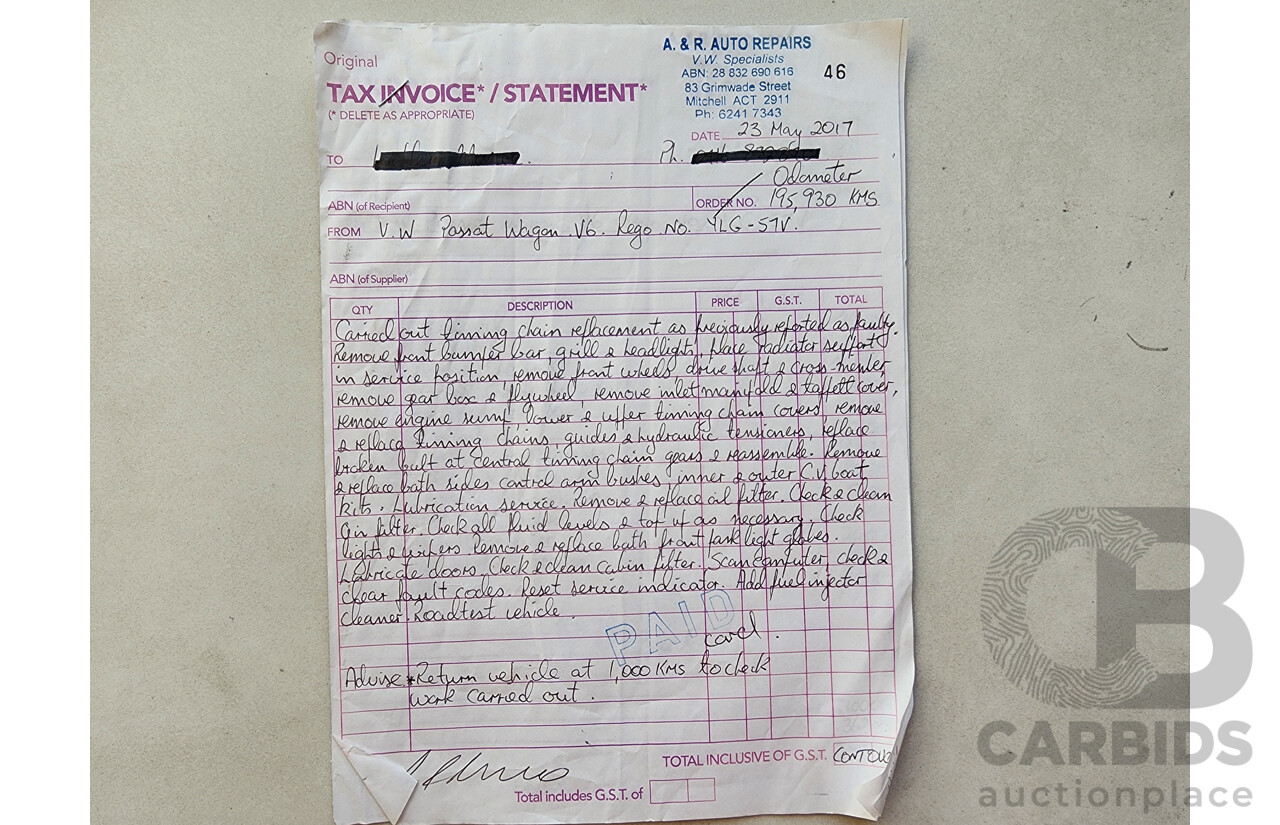 Original
A. & R. AUTO REPAIRS
V.W. Specialists
ABN: 28 832 690 616
83 Grimwade Street
Mitchell ACT 2911
Ph: 6241 7343
46
TAX INVOICE* / STATEMENT*
(* DELETE AS APPROPRIATE)
DATE 23 May 2017
TO Ph.
Odometer
ABN (of Recipient) ORDER NO. 195,930 KMS
FROM V.W Passat Wagon V6. Rego No. YLG-57V.
ABN (of Supplier)
QTY DESCRIPTION PRICE G.S.T. TOTAL
Carried out timing chain replacement as previously reported as faulty.
Remove front bumper bar, grill & headlights, place radiator support
in service position, remove front wheels, drive shaft & cross-member
remove gear box & flywheel, remove inlet manifold & tappett cover,
remove engine sump lower & upper timing chain covers, remove
& replace timing chains, guides & hydraulic tensioners, replace
broken bult at central timing chain gears & reassemble. Remove
& replace both sides control arm bushes, inner & outer C.V boat
kits. Lubrication service. Remove & replace oil filter. Check & clean
air filter. Check all fluid levels & top up as necessary. Check
lights & wipers. Remove & replace both front park light globes.
Lubricate doors. Check & clean cabin filter. Scan computer, check &
clear fault codes. Reset service indicator. Add fuel injector
cleaner. Roadtest vehicle.
PAID
card.
Advise *Return vehicle at 1,000 KMS to check
work carried out.
TOTAL INCLUSIVE OF G.S.T.
Total includes G.S.T. of
CB
CARBIDS
auctionplace